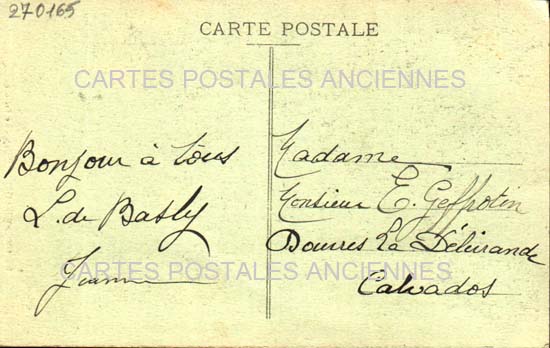 270165
CARTE POSTALE
CARTES POSTALES ANCIENNES
Bonjour à tous
L. de Basly
Jeanne
Madame
Monsieur E. Geffrotin
Douvres La Délivrande
Calvados
CARTES POSTALES ANCIENNES